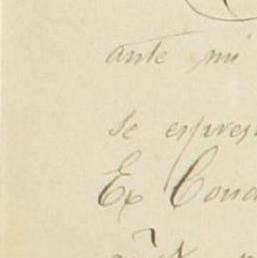 ante mi
se espres
Ex Cond